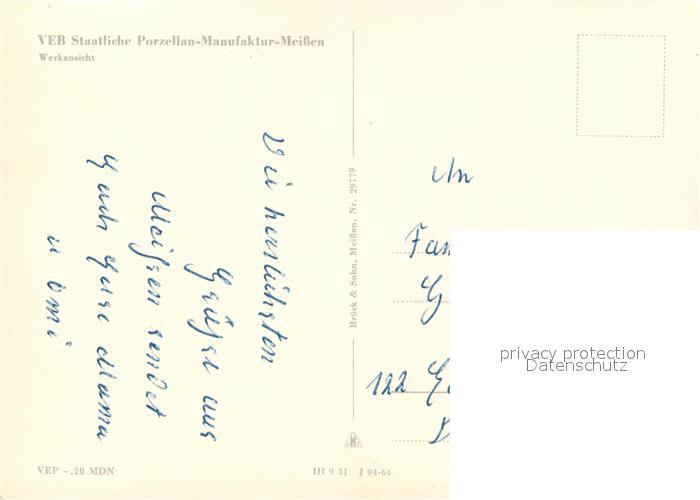 VEB Staatliche Porzellan-Manufaktur-Meißen
Werkansicht
Die herzlichsten
Grüße aus
Meißen sendet
Euch Eure Mama
u Omi
Brück & Sohn, Meißen, Nr. 29779
An
Fam
G
122
VEP -,20 MDN
III 9 31 J 04-64
privacy protection
Datenschutz